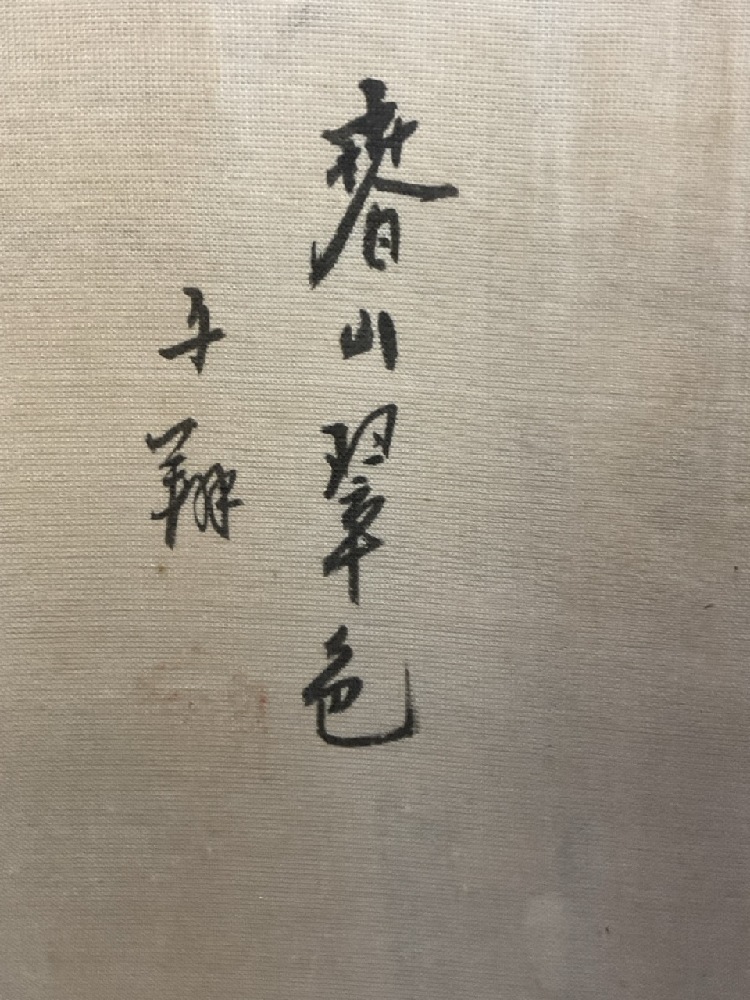 春山翠色
子翔